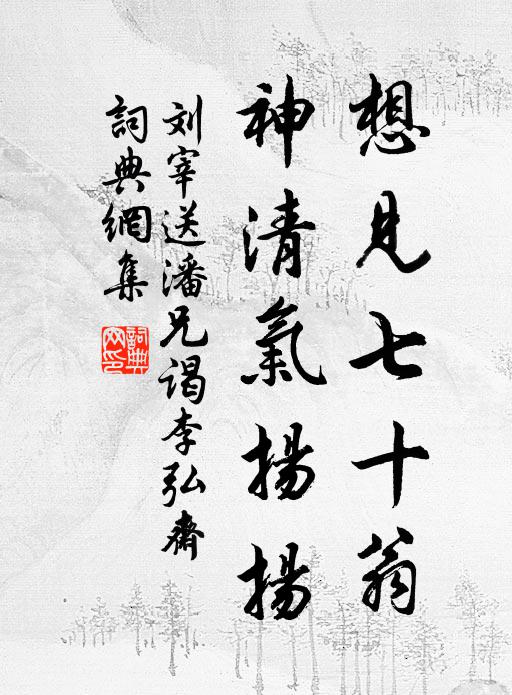 想見七十翁
神清氣揚揚
刘宰送潘兄谒李弘齋
詞典網集
詞典网印